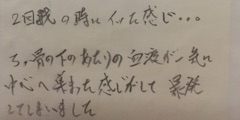 2回戦の時に イッた感じ・・・。
骨の下のあたりの血液が一気に
中心へ集まった感じがして 暴発
してしまいました